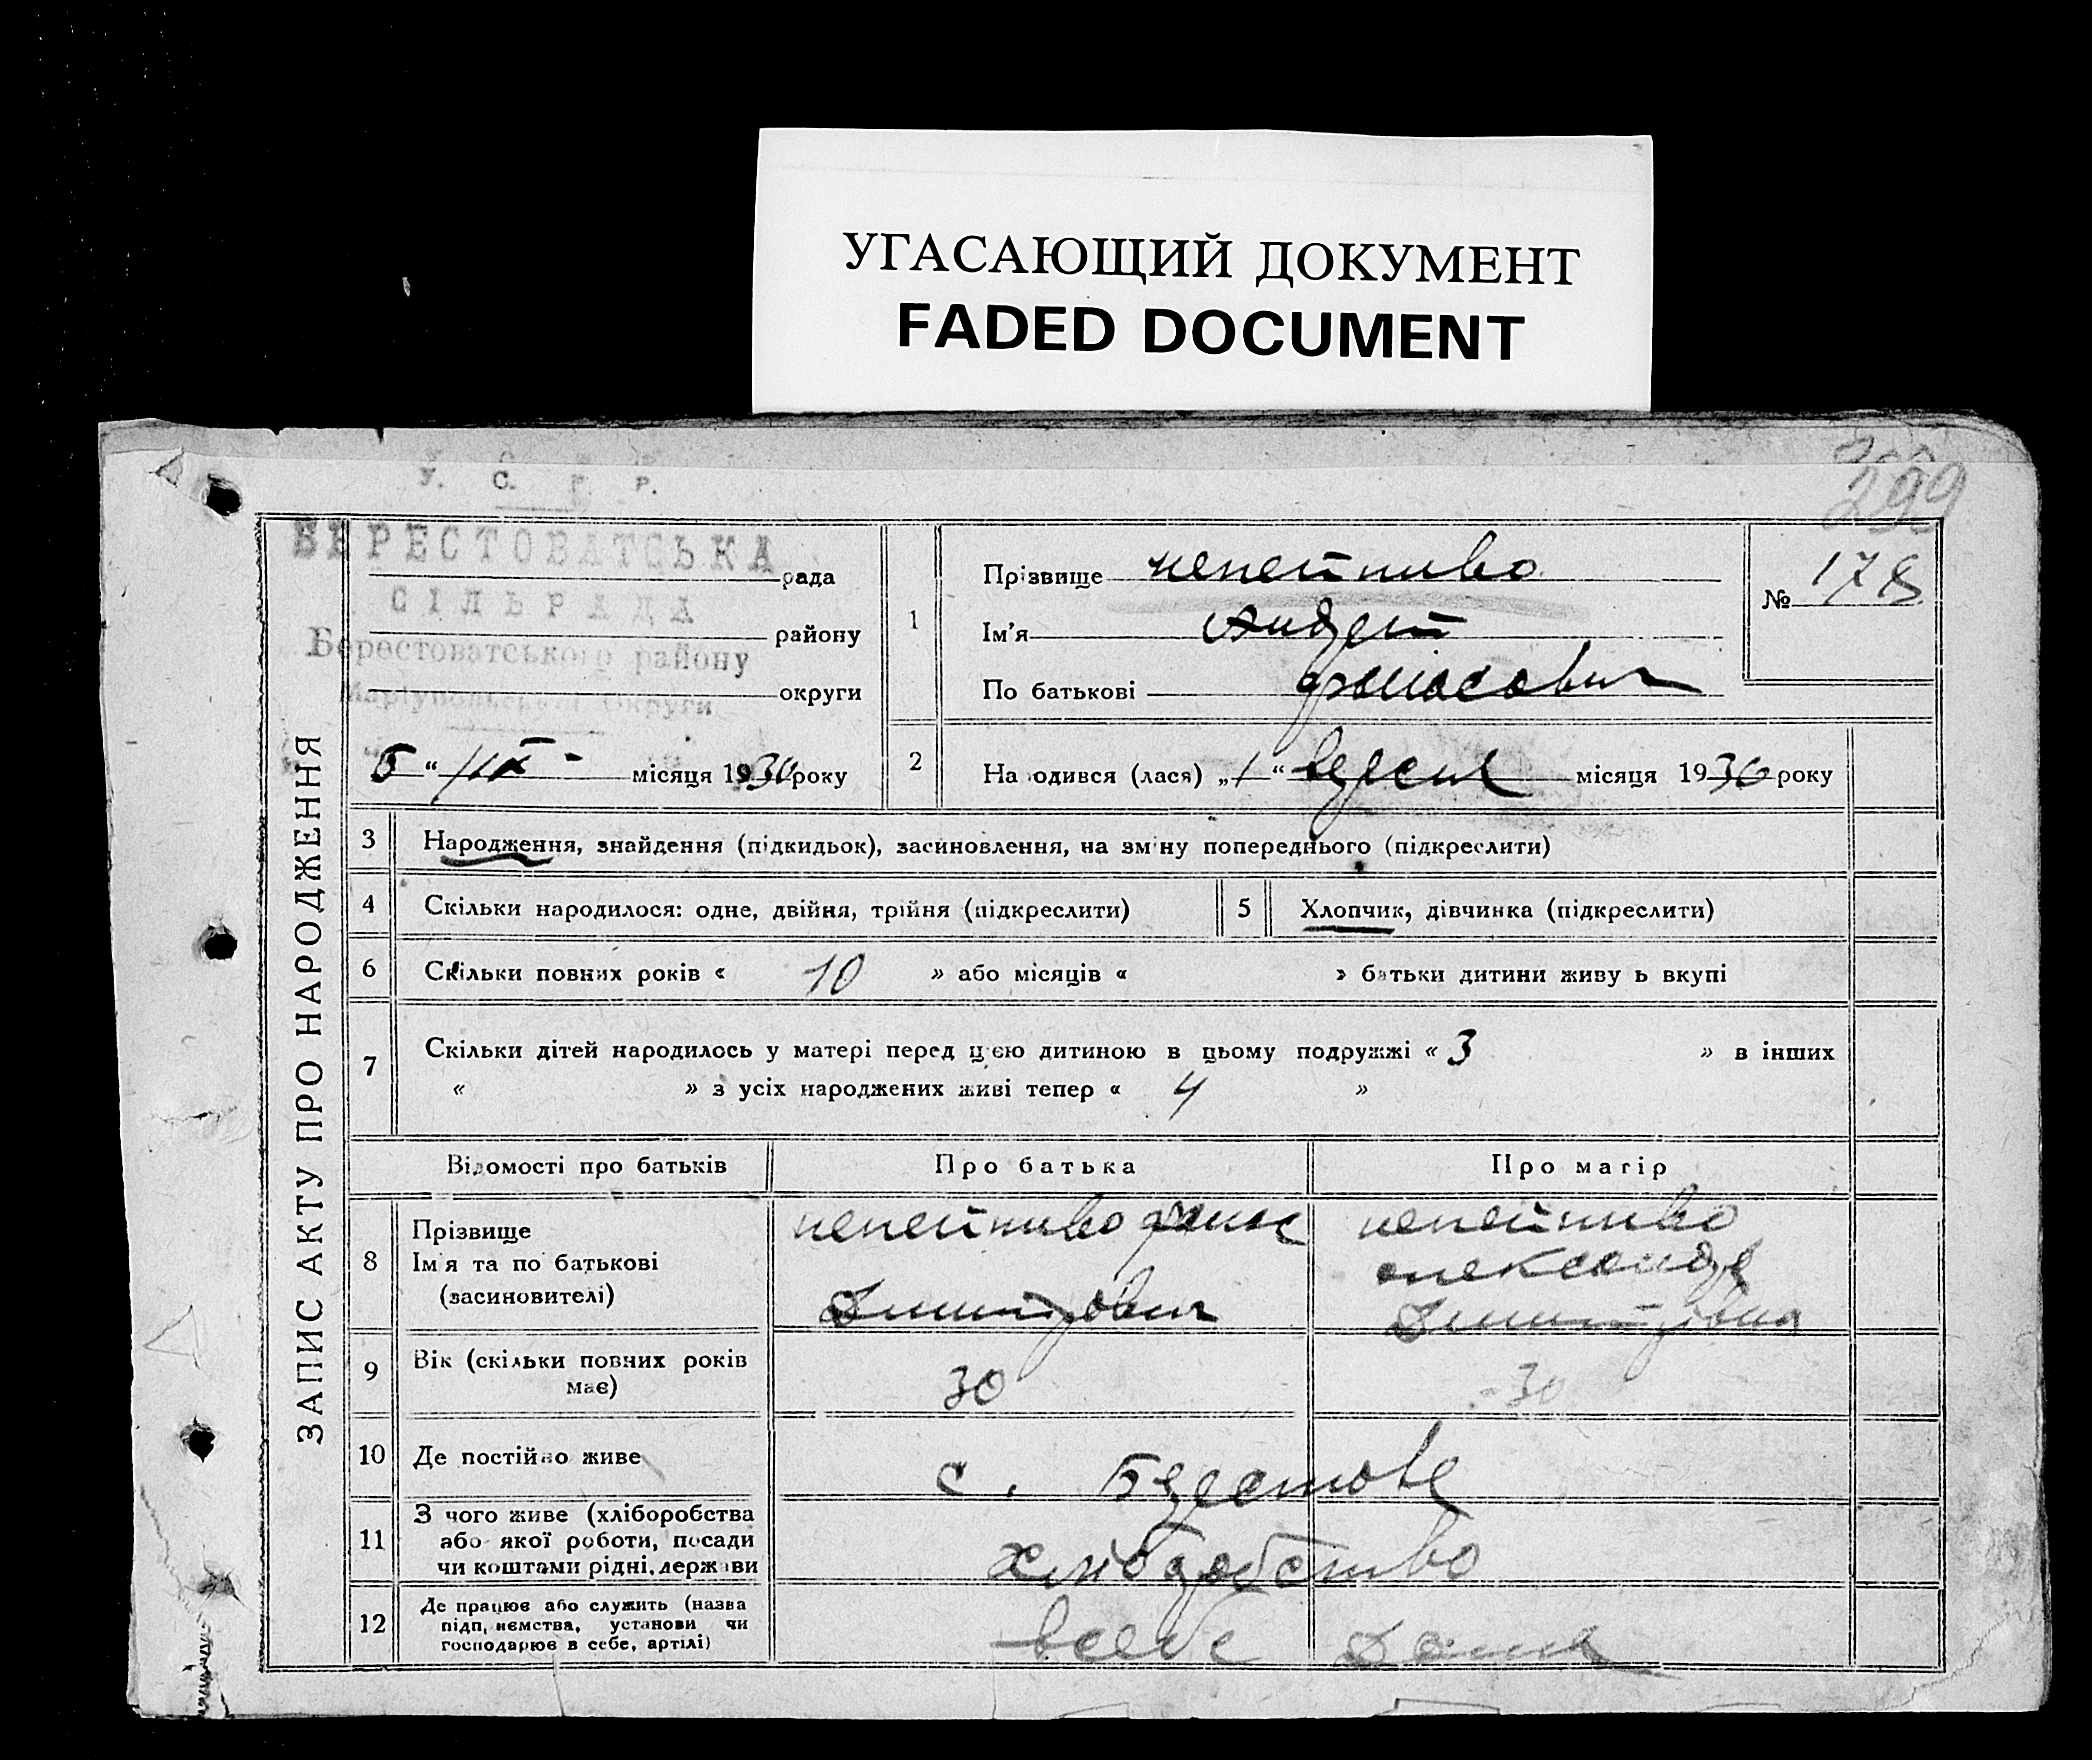 УГАСАЮЩИЙ ДОКУМЕНТ
FADED DOCUMENT
299
У. С. Р. Р.
БЕРЕСТОВАТСЬКА рада
СІЛЬРАДА
району
Берестоватського району
округи
Маріупольської Округи
5 “ IX - місяця 1930 року
ЗАПИС АКТУ ПРО НАРОДЖЕННЯ
1 Прізвище непейпиво
Ім'я Андрей
По батькові
№ 178
2 На одився (лася) „1“ версня місяця 1930 року
3 Народження, знайдення (підкидьок), засиновлення, на зміну попереднього (підкреслити)
4 Скільки народилося: одне, двійня, трійня (підкреслити) 5 Хлопчик, дівчинка (підкреслити)
6 Скільки повних років « 10 » або місяців « » батьки дитини живу ь вкупі
7 Скільки дітей народилось у матері перед цією дитиною в цьому подружжі « 3 » в інших
« » з усіх народжених живі тепер « 4 »
Відомості про батьків Про батька Про матір
8 Прізвище непейпиво непейпиво
Ім'я та по батькові
(засиновителі) Дмитрович Дмитрівна
9 Вік (скільки повних років має) 30 30
10 Де постійно живе с. Берестове
11 З чого живе (хліборобства
або якої роботи, посади
чи коштами рідні, держави хліборобство
12 Де працює або служить (назва
підп, иємства, установи чи
господарює в себе, артілі) в себе дома